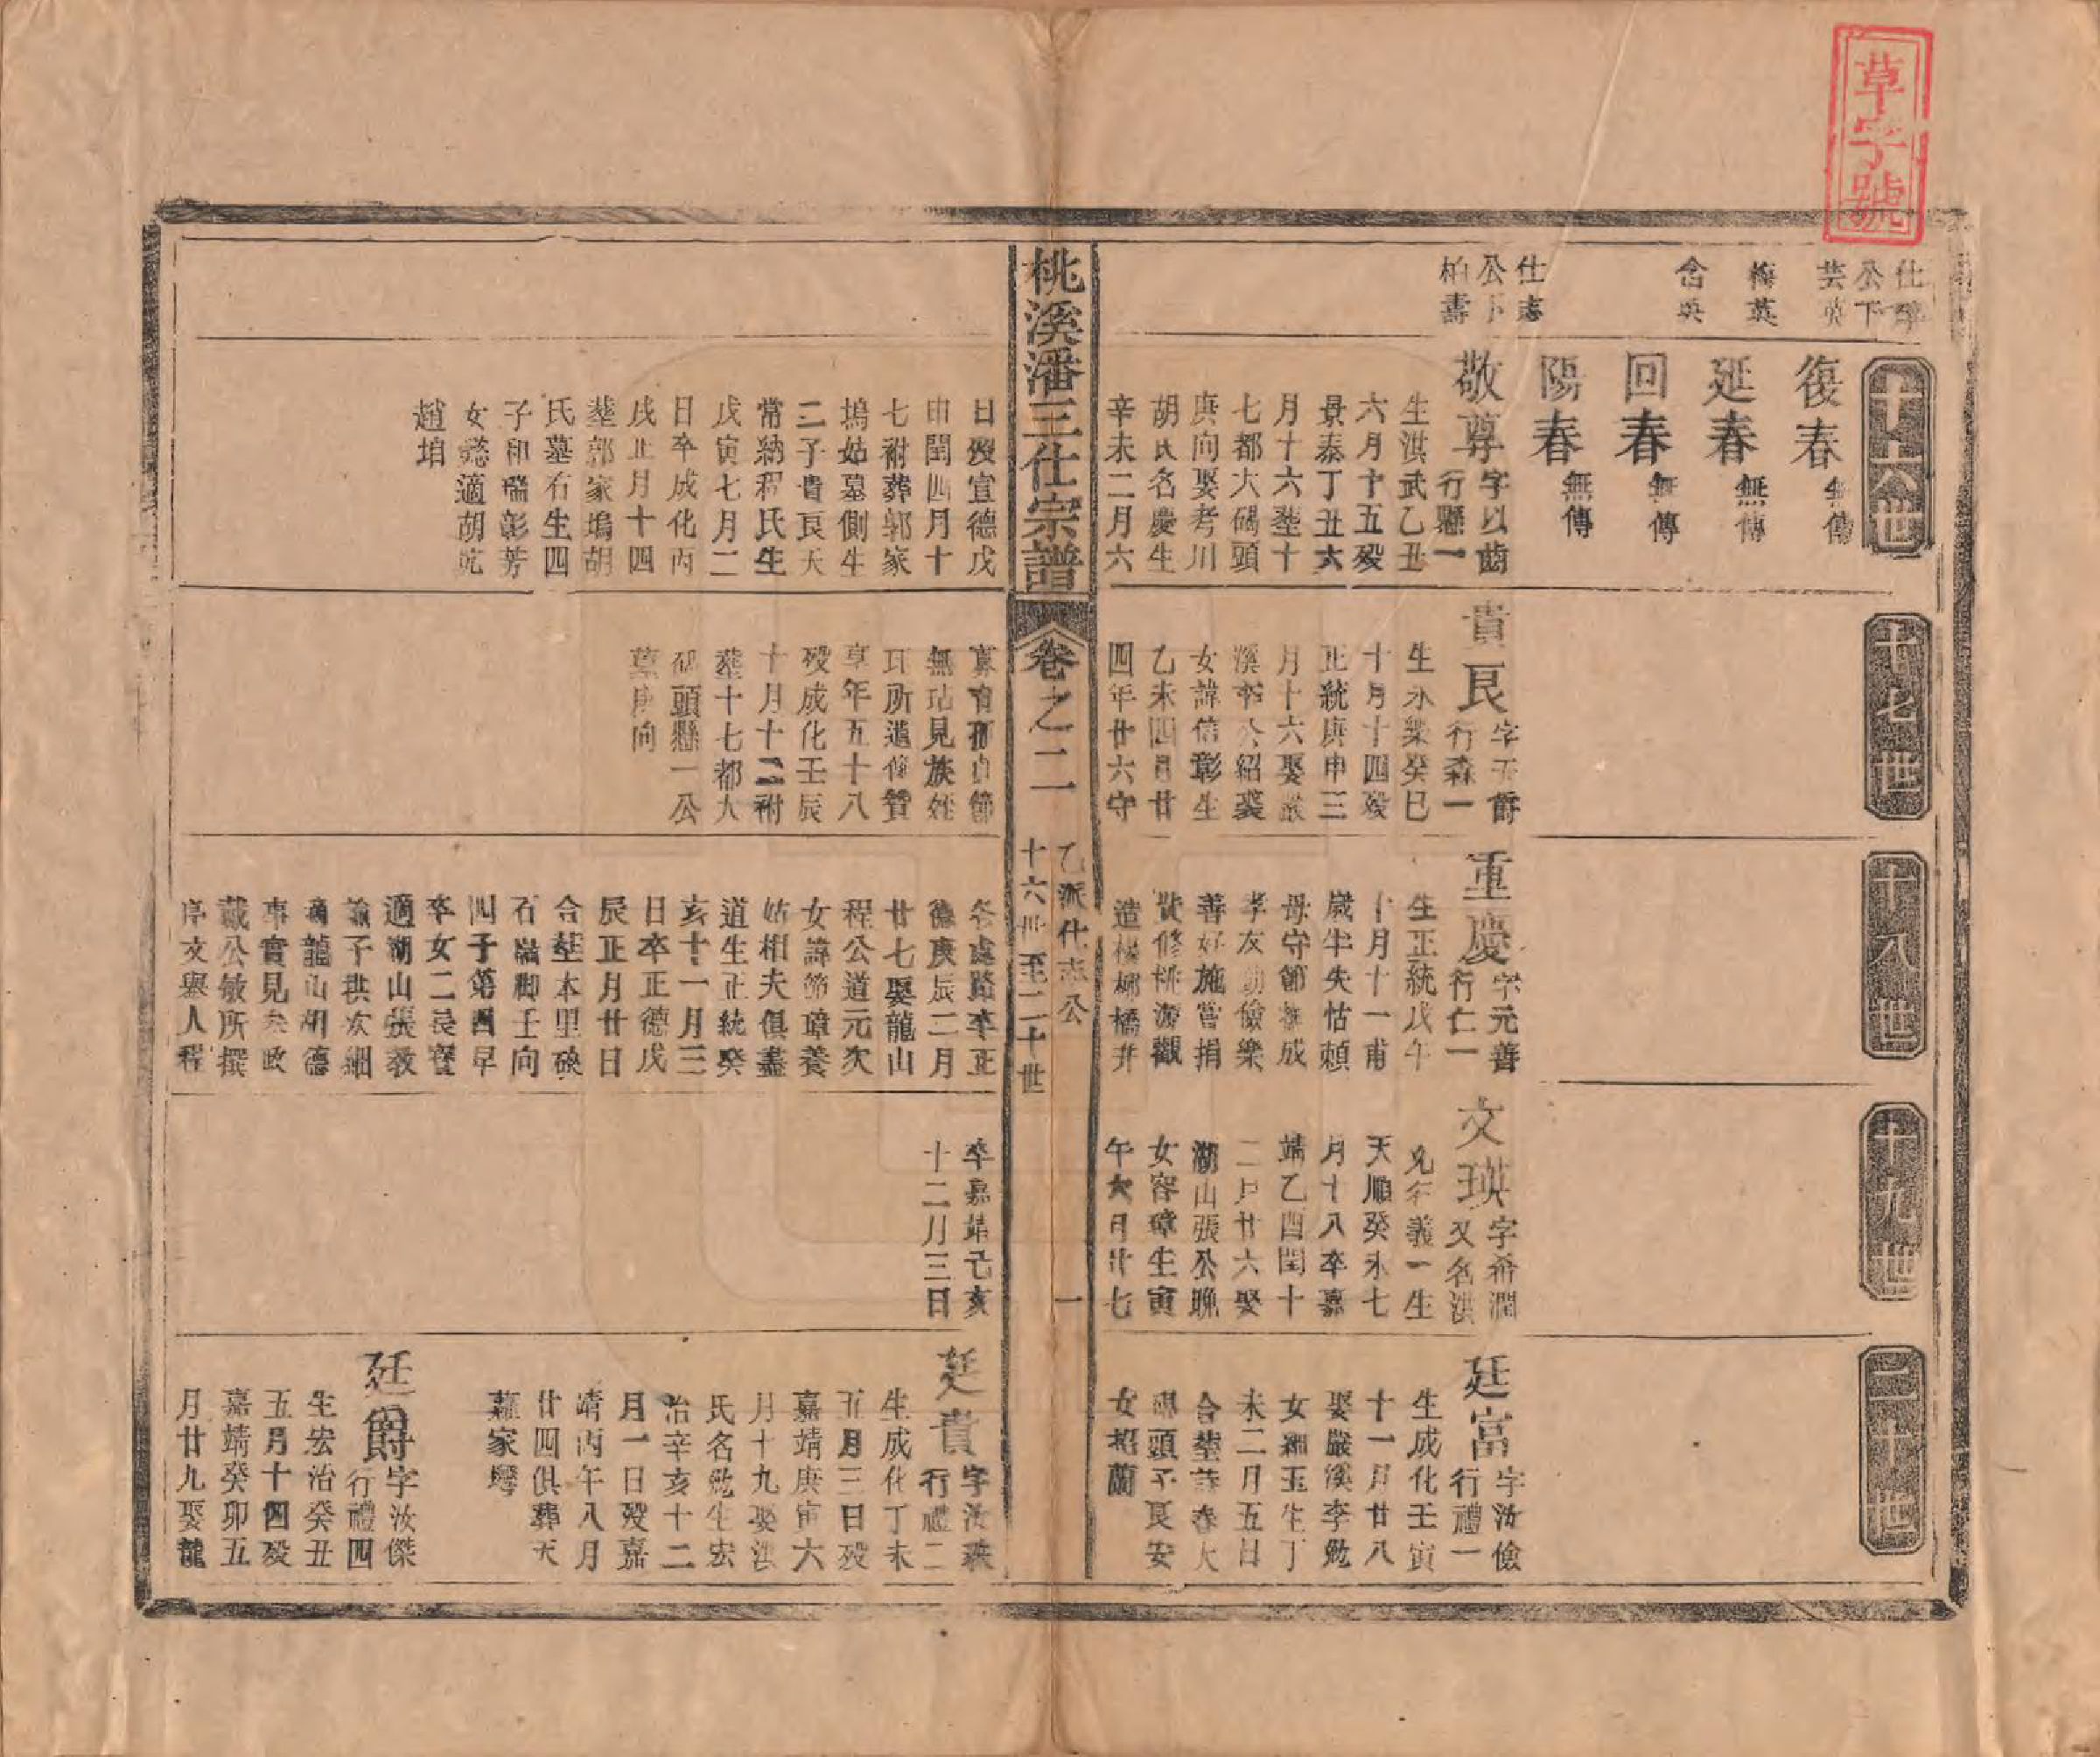 草字號
仕
公下
芸英
梅英
含英
仕志
公下
柏壽
十六世
復春 無傳
延春 無傳
回春 無傳
陽春 無傳
敬尊 字以齒
行懸一
生洪武乙丑
六月十五殁
景泰丁丑六
月十六塟十
七都大碣頭
庚向娶考川
胡氏名慶生
辛未二月六
日殁宣德戊
申閏四月十
七祔葬郭家
塢姑墓側生
二子貴良天
常納程氏生
戊寅七月二
日卒成化丙
戌正月十四
塟郭家塢胡
氏墓右生四
子和瑞彰芳
女懿適胡
趙垍
十七世
貴良 字天爵
行森一
生永樂癸巳
十月十四殁
正統庚申三
月十六娶嚴
溪李公紹裘
女諱信彰生
乙未四月廿
四年廿六守
無玷見族姓
享年五十八
殁成化壬辰
十月十二祔
塟十七都大
碣頭懸一公
墓庚向
十八世
重慶 字元善
行仁一
生正統戊午
十月十一甫
歲半失怙賴
母守節撫成
孝友勤儉樂
善好施嘗捐
貲修桃源觀
造楊柳橋并
各處路卒正
德庚辰二月
廿七娶龍山
程公道元次
女諱節璋養
姑相夫俱盡
道生正統癸
亥十一月三
日卒正德戊
辰正月廿日
合塟本里碤
石嶺脚壬向
四子第四早
卒女二長容
適湖山張敎
諭子珙次細
適龍山胡德
事實見叅政
戴公敏所撰
序文舉人程
十九世
文瑛 字希潤
又名洪
兄行義一生
天順癸未七
月十八卒嘉
靖乙酉閏十
二月廿六娶
湖山張公聰
女容璋生寅
午六月廿七
卒嘉靖己亥
十二月三日
二十世
廷富 字汝儉
行禮一
生成化壬寅
十一月廿八
娶嚴溪李勉
女細玉生丁
未二月五日
合塟詩春大
碣頭子良安
女招蘭
廷貴
行禮二
生成化丁未
五月三日殁
嘉靖庚寅六
月十九娶洪
氏名勉生宏
治辛亥十二
月一日殁嘉
靖丙午八月
廿四俱葬天
蕭家塆
廷爵 字汝傑
行禮四
生宏治癸丑
五月十四殁
嘉靖癸卯五
月廿九娶龍
桃溪潘三仕宗譜 卷之二
乙派仕志公
十六世至二十世
一